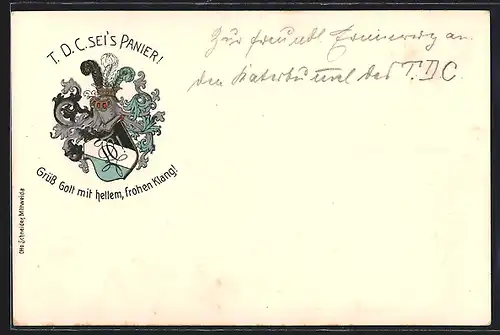 T. D. C. SEI'S PANIER!
Grüß Gott mit hellem, frohen Klang!
Zur freundl. Erinnerung an
den Katerbummel des T.D.C.
Otto Schneider, Mittweida